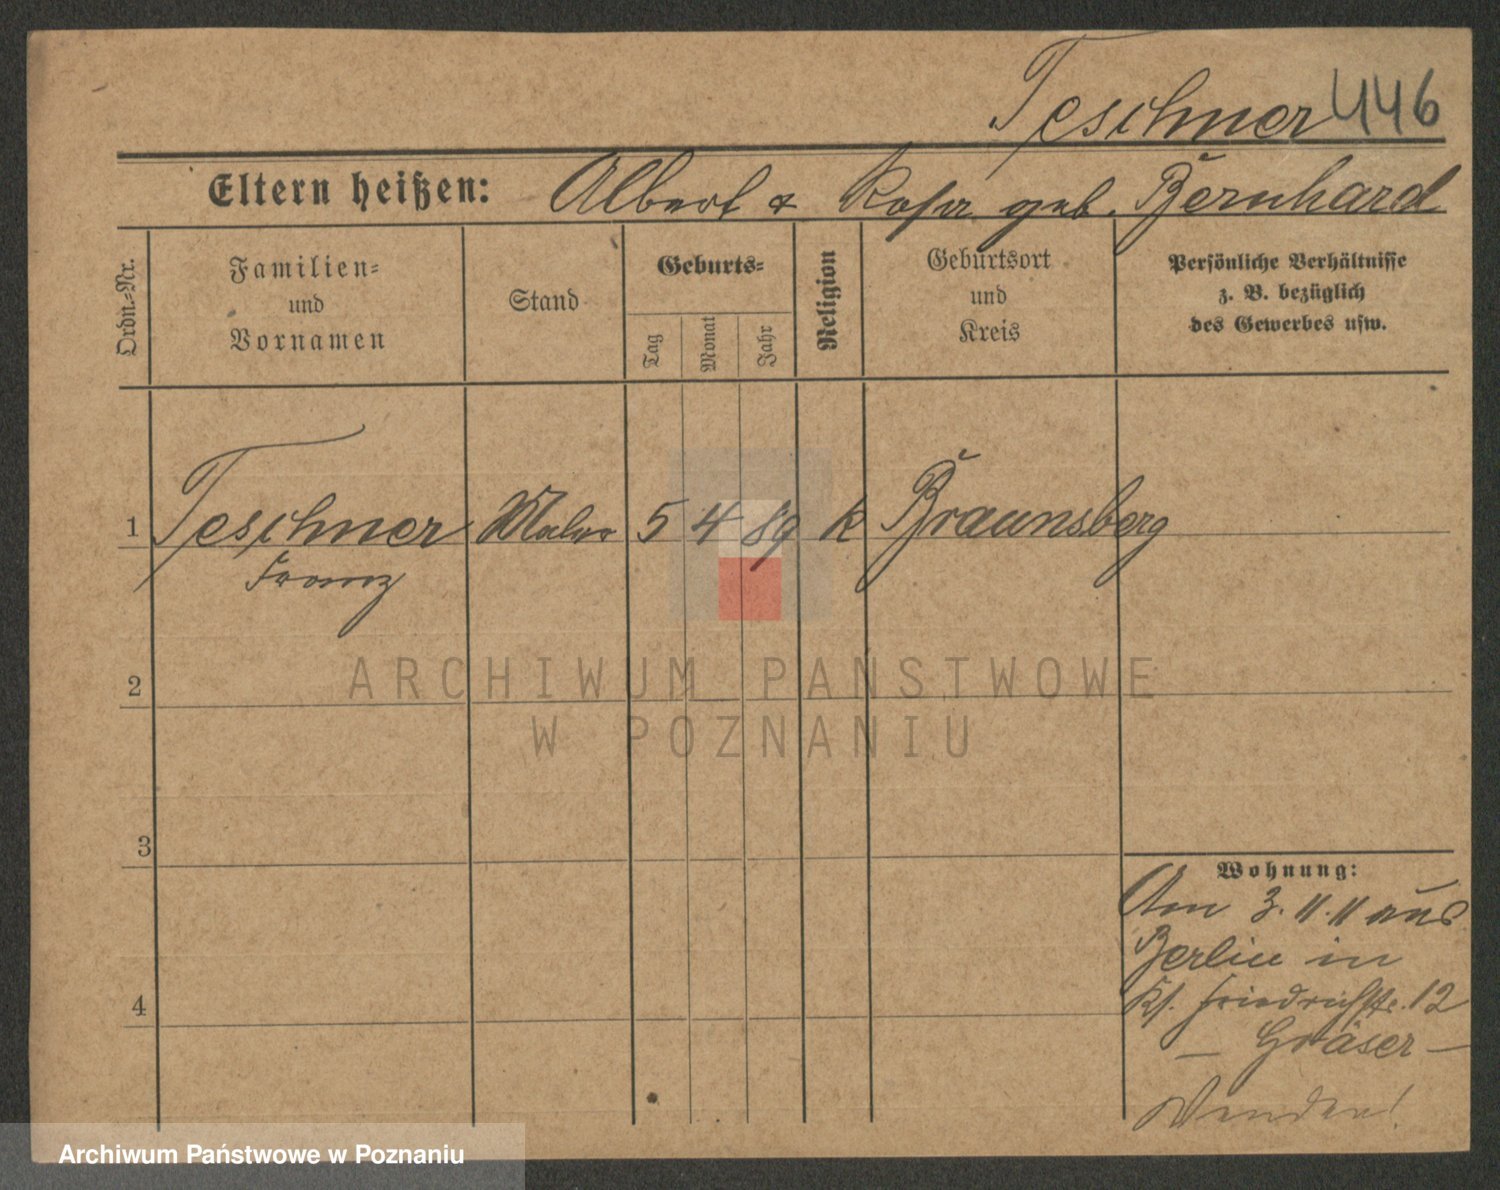 Teschner 446
Eltern heißen: Albert & Rosa geb. Bernhard
Ordn.-Nr.
Familien-
und
Vornamen
Stand
Geburts-
Tag
Monat
Jahr
Religion
Geburtsort
und
Kreis
Persönliche Verhältnisse
z. B. bezüglich
des Gewerbes usw.
1 Teschner Maler 5 4 89 k Braunsberg
Franz
ARCHIWUM PAŃSTWOWE
W POZNANIU
2
3
4
Wohnung:
Am 3. 11. 11 aus
Berlin in
Friedrichstr. 12
— Gräser —
Wenden!
Archiwum Państwowe w Poznaniu